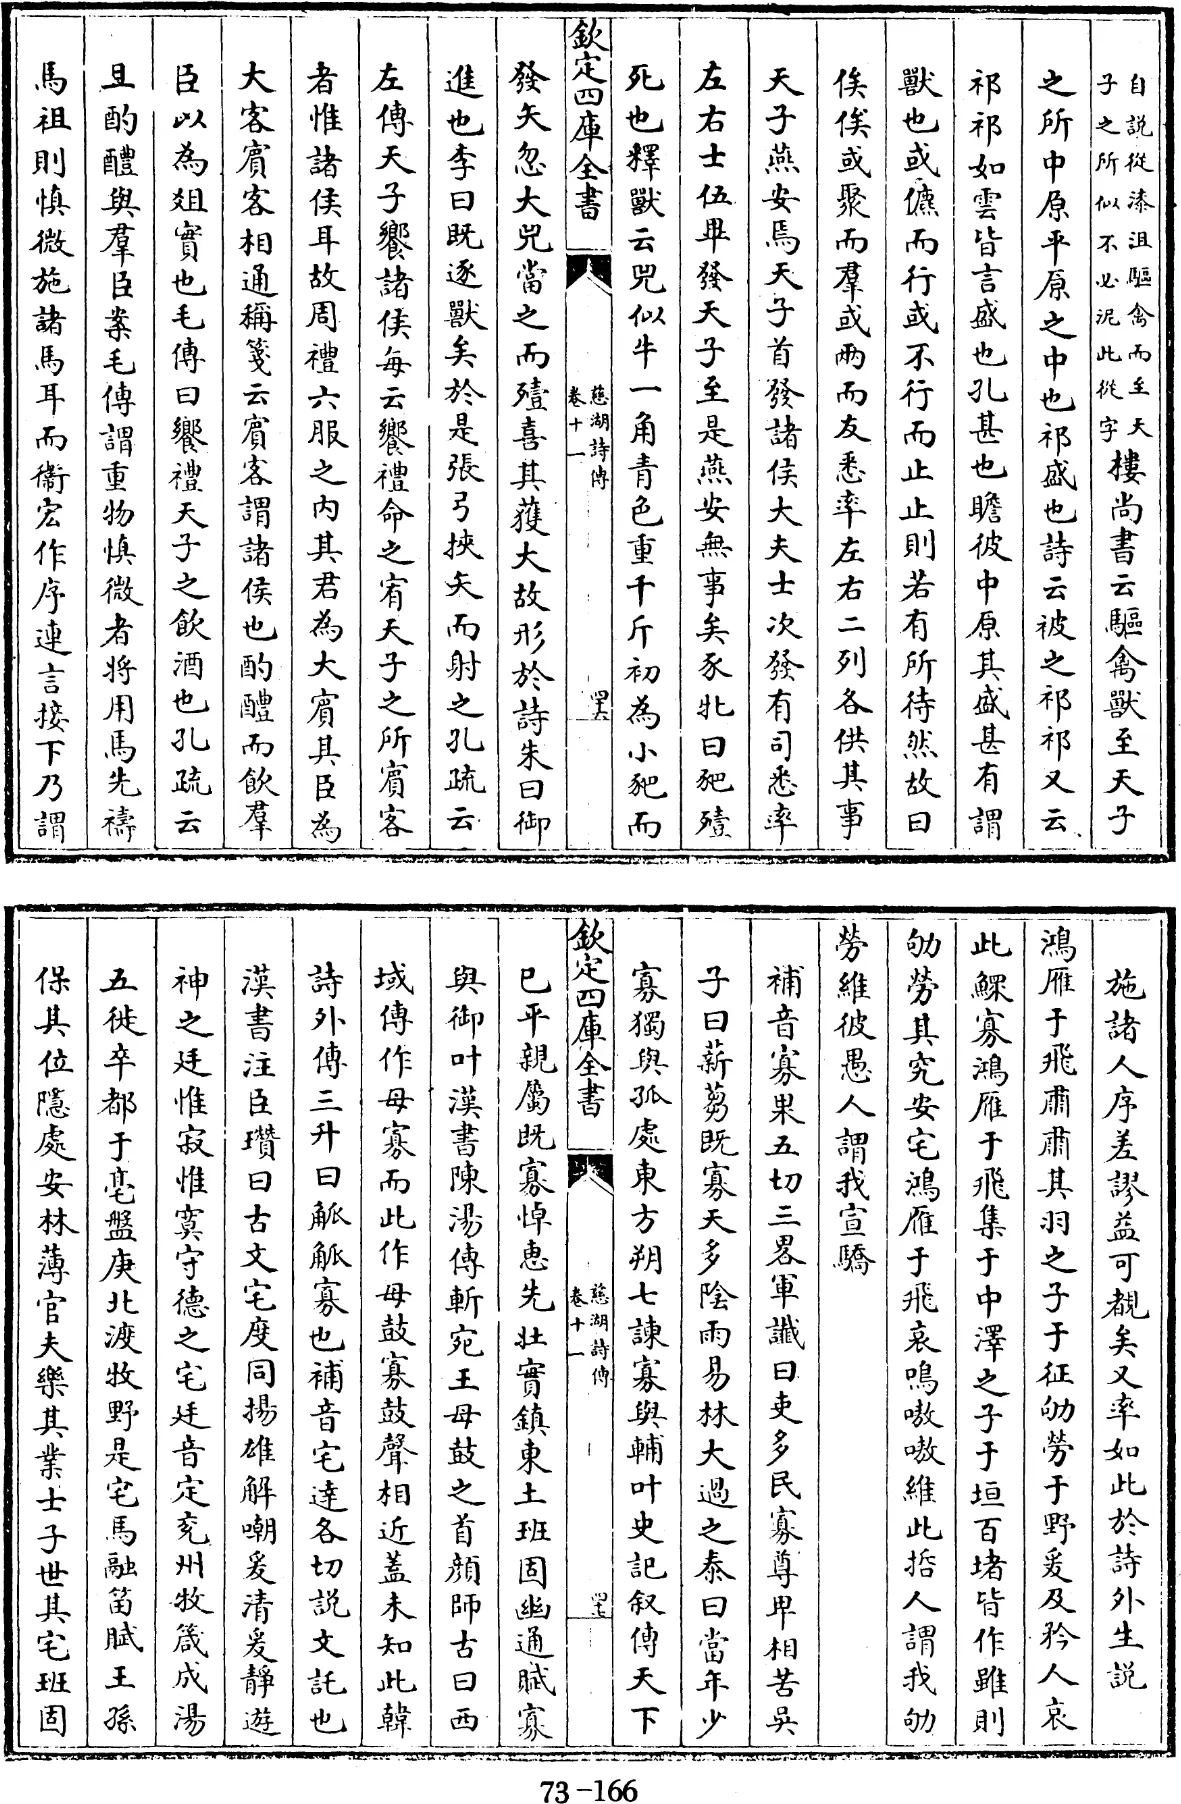 自説從漆沮驅禽而至天
子之所似不必泥此從字
樓尚書云驅禽獸至天子
之所中原平原之中也祁盛也詩云被之祁祁又云
祁祁如雲皆言盛也孔甚也瞻彼中原其盛甚有謂
獸也或儦而行或不行而止止則若有所待然故曰
俟俟或聚而羣或兩而友悉率左右二列各供其事
天子燕安焉天子首發諸侯大夫士次發有司悉率
左右士伍畢發天子至是燕安無事矣豕牝曰豝殪
死也釋獸云兕似牛一角青色重千斤初為小豝而
欽定四庫全書
慈湖詩傳
卷十一
四十六
發矢忽大兕當之而殪喜其獲大故形於詩朱曰御
進也李曰既逐獸矣於是張弓挾矢而射之孔疏云
左傳天子饗諸侯每云饗禮命之宥天子之所賓客
者惟諸侯耳故周禮六服之内其君為大賓其臣為
大客賓客相通稱箋云賓客謂諸侯也酌醴而飲羣
臣以為俎實也毛傳曰饗禮天子之飲酒也孔疏云
且酌醴與羣臣案毛傳謂重物慎微者將用馬先禱
馬祖則慎微施諸馬耳而衞宏作序連言接下乃謂
施諸人序差謬益可覩矣又率如此於詩外生説
鴻雁于飛肅肅其羽之子于征劬勞于野爰及矜人哀
此鰥寡鴻雁于飛集于中澤之子于垣百堵皆作雖則
劬勞其究安宅鴻雁于飛哀鳴嗷嗷維此哲人謂我劬
勞維彼愚人謂我宣驕
補音寡果五切三畧軍讖曰吏多民寡尊卑相苦吳
子曰薪芻既寡天多陰雨易林大過之泰曰當年少
寡獨與孤處東方朔七諫寡與輔叶史記叙傳天下
欽定四庫全書
慈湖詩傳
卷十一
四十七
已平親屬既寡悼惠先壯實鎮東土班固幽通賦寡
與御叶漢書陳湯傳斬宛王母鼓之首顔師古曰西
域傳作母寡而此作毋鼓寡鼓聲相近蓋未知此韓
詩外傳三升曰觚觚寡也補音宅達各切説文託也
漢書注臣瓚曰古文宅度同揚雄解嘲爰清爰靜遊
神之廷惟寂惟寞守德之宅廷音定兖州牧箴成湯
五徙卒都于亳盤庚北渡牧野是宅馬融笛賦王孫
保其位隱處安林薄官夫樂其業士子世其宅班固
73-166